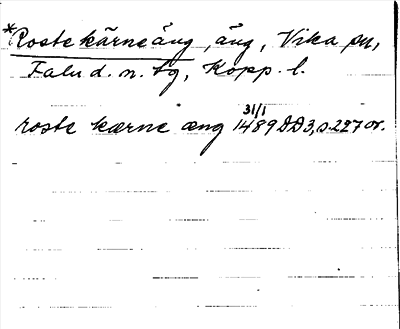 *Rostekärneäng, äng, Vika sn,
Falu d. n. tg, Kopp. l.
31/1
roste kærne æng 1489 DD3, s. 227 or.